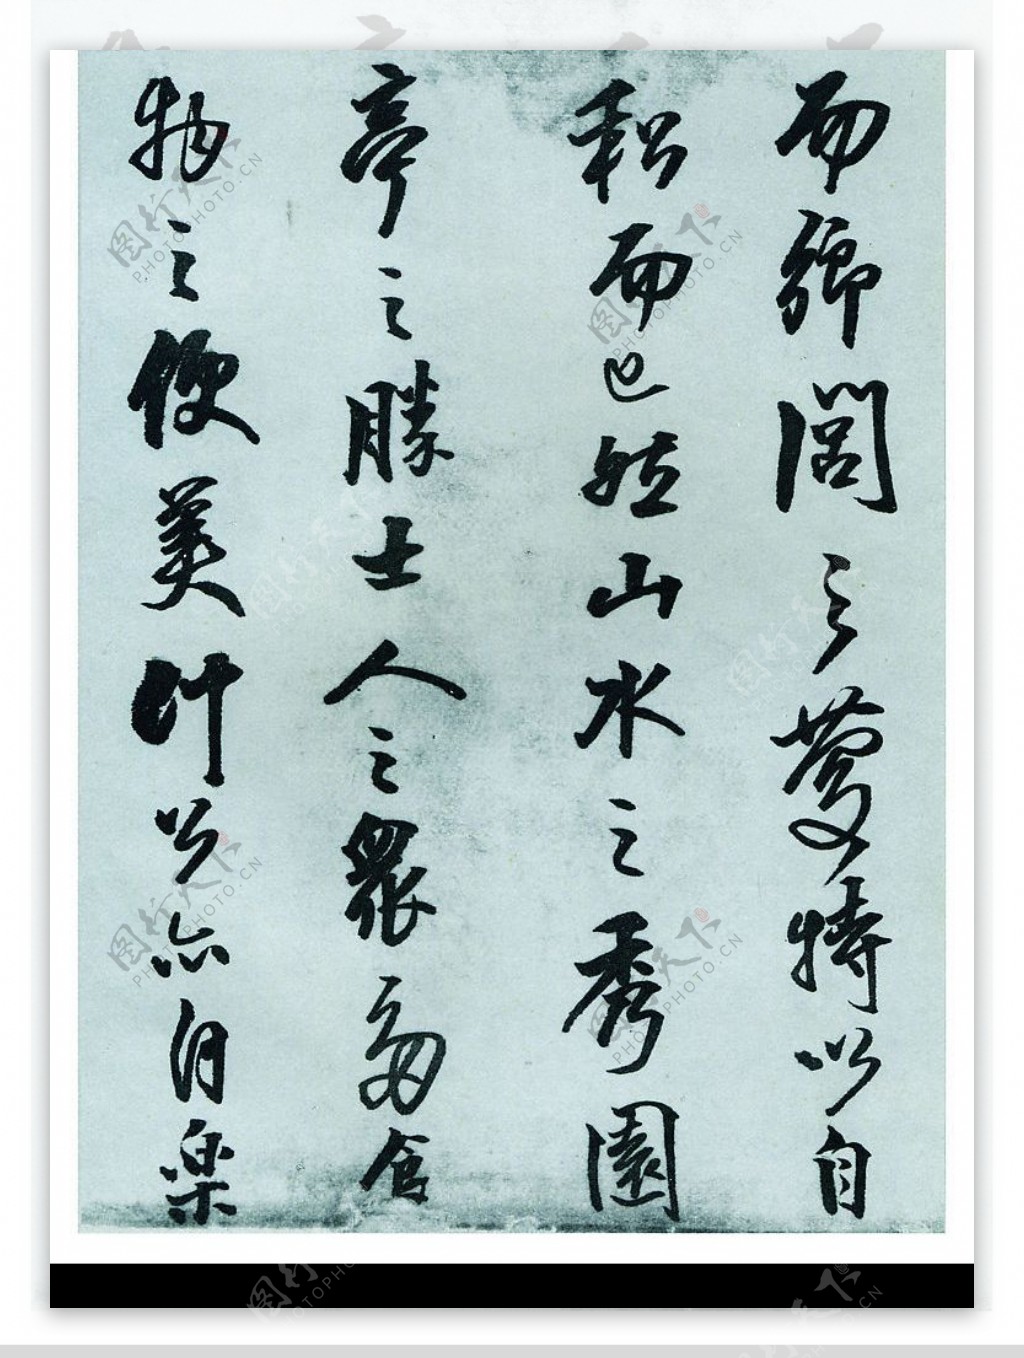 而鄉閭之特以自
私而已然山水之秀園
亭之勝士人之衆多食
物之便美計公亦自樂
图行天下
PHOTOPHOTO.CN